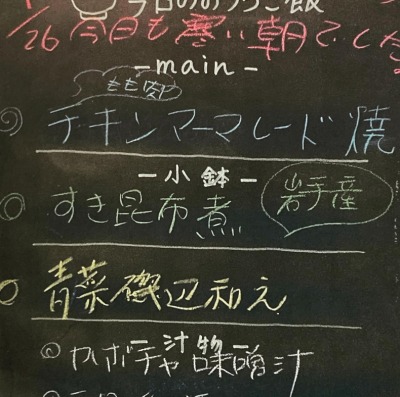 今日のおうちご飯
1/26 今日も寒い朝でした
-main-
もも肉
チキンマーマレード焼
-小鉢-
すき昆布煮
岩手産
青菜磯辺和え
-汁物-
カボチャ味噌汁